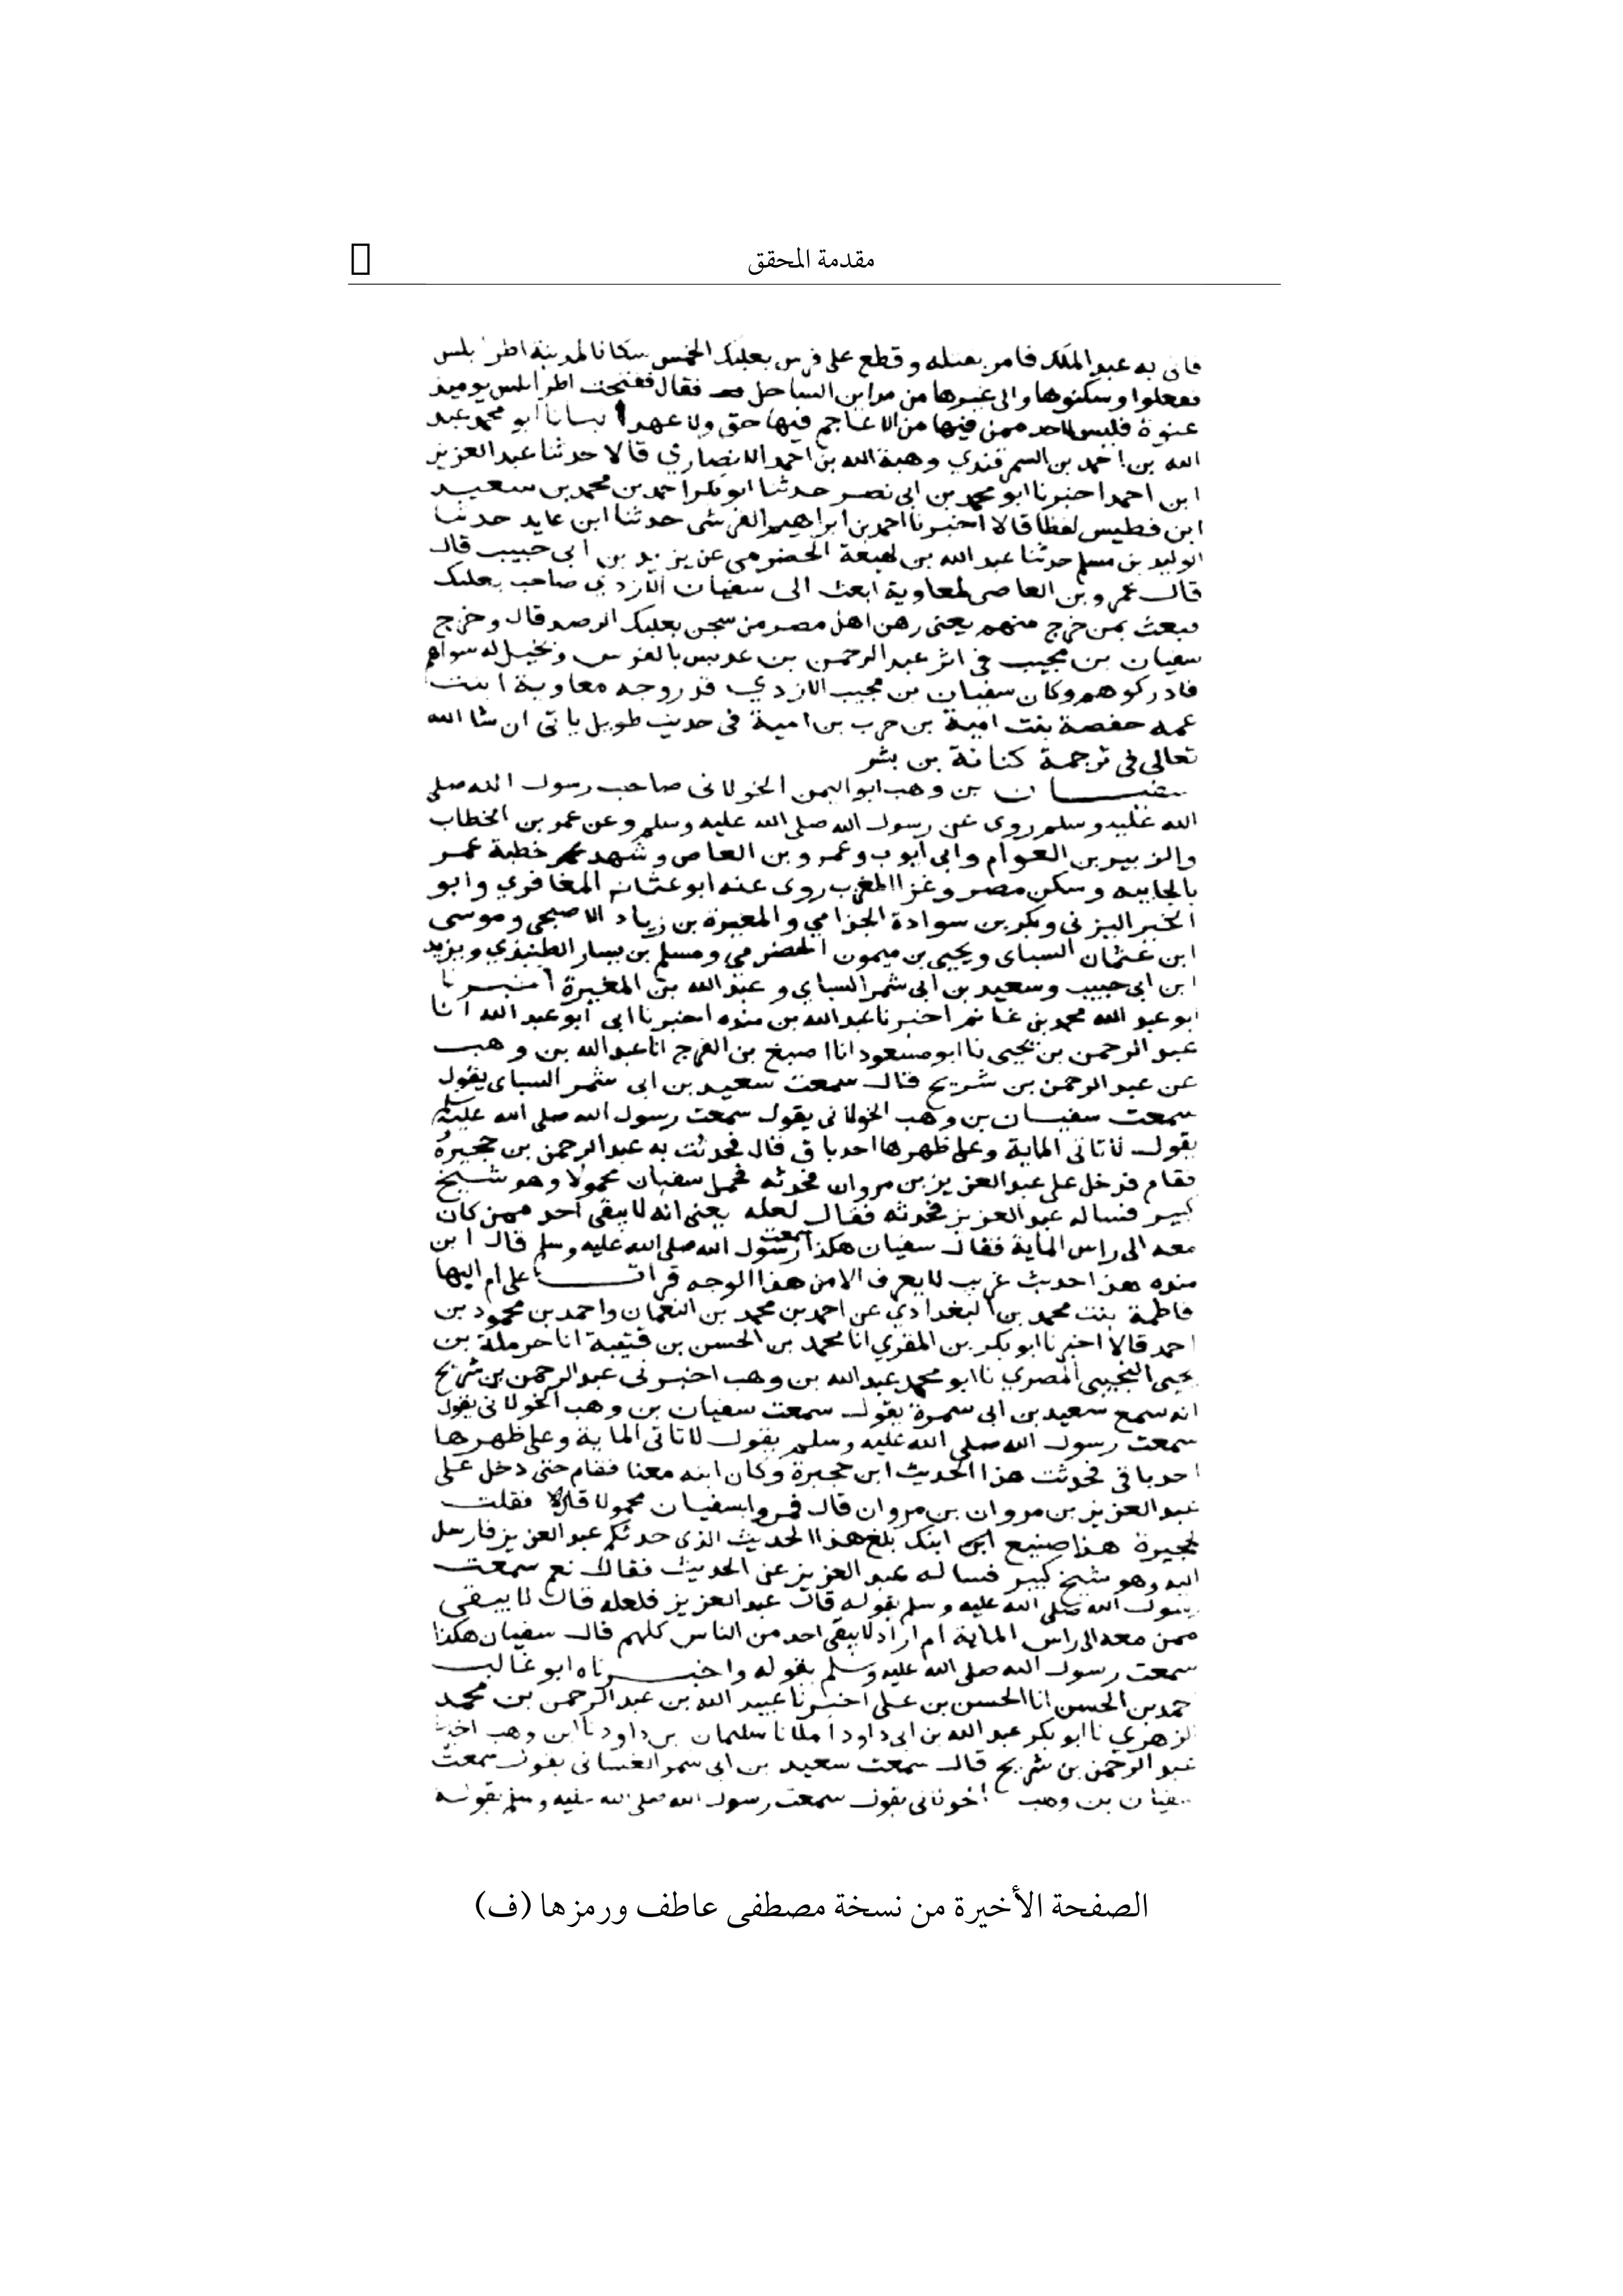 مقدمة المحقق
فاتى به عبد الملك فامر بقتله وقطع على فرس بعلبك الخمس سكانا لمدينة اطرابلس
ففعلوا وسكنوها والى غيرها من مداين الساحل فقال ففتحت اطرابلس يوميذ
عنوة فليس لاحد ممن فيها من الاعاجم فيها حق ولا عهد انبانا ابو محمد عبد
الله بن احمد بن السمرقندي وهبة الله بن احمد الانصاري قالا حدثنا عبد العزيز
ابن احمد اخبرنا ابو محمد بن ابى نصر حدثنا ابو بكر احمد بن محمد بن سعيد
ابن فطيس لفظا قالا اخبرنا احمد بن ابراهيم القرشى حدثنا ابن عايد حدثنا
الوليد بن مسلم حدثنا عبد الله بن لهيعة الحضرمى عن يزيد بن ابى حبيب قال
قال عمرو بن العاصى لمعاوية ابعث الى سفيان الازدي صاحب بعلبك
فبعث بمن خرج منهم يعنى رهن اهل مصر من سجن بعلبك الرصد قال وخرج
سفيان بن مجيب فى اثر عبد الرحمن بن عديس بالفرس
فادركوهم وكان سفيان بن مجيب الازدي قد زوجه معاوية ابنت
عمه حفصة بنت امية بن حرب بن امية فى حديث طويل ياتى ان شا الله
تعالى فى ترجمة كنانة بن بشر
سفيان بن وهب ابو اليمن الخولانى صاحب رسول الله صلى
الله عليه وسلم روى عن رسول الله صلى الله عليه وسلم وعن عمر بن الخطاب
والزبير بن العوام وابى ايوب وعمرو بن العاص وشهد خطبة عمر
بالجابيه وسكن مصر وغزا المغرب روى عنه ابو عشانه المعافري وابو
الخير اليزنى وبكر بن سوادة الجذامي والمغيرة بن زياد الاصبحى وموسى
ابن عثمان السباى ويحيى بن ميمون الحضرمي ومسلم بن يسار الطنبذي ويزيد
ابن ابى حبيب وسعيد بن ابى شمر السباي وعبد الله بن المغيرة اخبرنا
ابو عبد الله محمد بن غانم اخبرنا عبد الله بن منده اخبرنا ابى ابو عبد الله انا
عبد الرحمن بن يحيى نا ابو مسعود انا اصبغ بن الفرج انا عبد الله بن وهب
عن عبد الرحمن بن شريح قال سمعت سعيد بن ابى شمر السباى يقول
سمعت سفيان بن وهب الخولانى يقول سمعت رسول الله صلى الله عليه وسلم
يقول لا تاتى الماية وعلى ظهرها احد باق قال فحدثت به عبد الرحمن بن حجيرة
فقام فدخل على عبد العزيز بن مروان فحدثه فحمل سفيان محمولا وهو شيخ
كبير فساله عبد العزيز فحدثه فقال لعله يعنى انه لا يبقى احد ممن كان
معه الى راس الماية فقال سفيان هكذا سمعت رسول الله صلى الله عليه وسلم قال ابن
منده هذا حديث غريب لا يعرف الا من هذا الوجه قرات على ام البها
فاطمة بنت محمد بن البغدادي عن احمد بن محمد بن النعمان واحمد بن محمود بن
احمد قالا اخبرنا ابو بكر بن المقري انا محمد بن الحسن بن قتيبة انا حرملة بن
يحيى التجيبى المصري نا ابو محمد عبد الله بن وهب اخبرنى عبد الرحمن بن شريح
انه سمع سعيد بن ابى سمرة يقول سمعت سفيان بن وهب الخولانى يقول
سمعت رسول الله صلى الله عليه وسلم يقول لا تاتى الماية وعلى ظهرها
احد باقى فحدثت هذا الحديث ابن حجيرة وكان ابنه معنا فقام حتى دخل على
عبد العزيز بن مروان بن مروان قال فمروا بسفيان محمولا فقلت
لحجيرة هذا صنيع ابنك بلغ هذا الحديث الذى حدثكم عبد العزيز فارسل
اليه وهو شيخ كبير فساله عبد العزيز عن الحديث فقال نعم سمعت
رسول الله صلى الله عليه وسلم يقوله قال عبد العزيز فلعله قال لا يبقى
ممن معه الى راس الماية ام اراد لا يبقى احد من الناس كلهم قال سفيان هكذا
سمعت رسول الله صلى الله عليه وسلم يقوله واخبرناه ابو غالب
احمد بن الحسن انا الحسن بن على اخبرنا عبيد الله بن عبد الرحمن بن محمد
الزهري نا ابو بكر عبد الله بن ابى داود املانا سليمان بن داود نا ابن وهب
عبد الرحمن بن شريح قال سمعت سعيد بن ابى سمر الغسانى يقول سمعت
سفيان بن وهب الخولانى يقول سمعت رسول الله صلى الله عليه وسلم يقول
الصفحة الأخيرة من نسخة مصطفى عاطف ورمزها (ف)